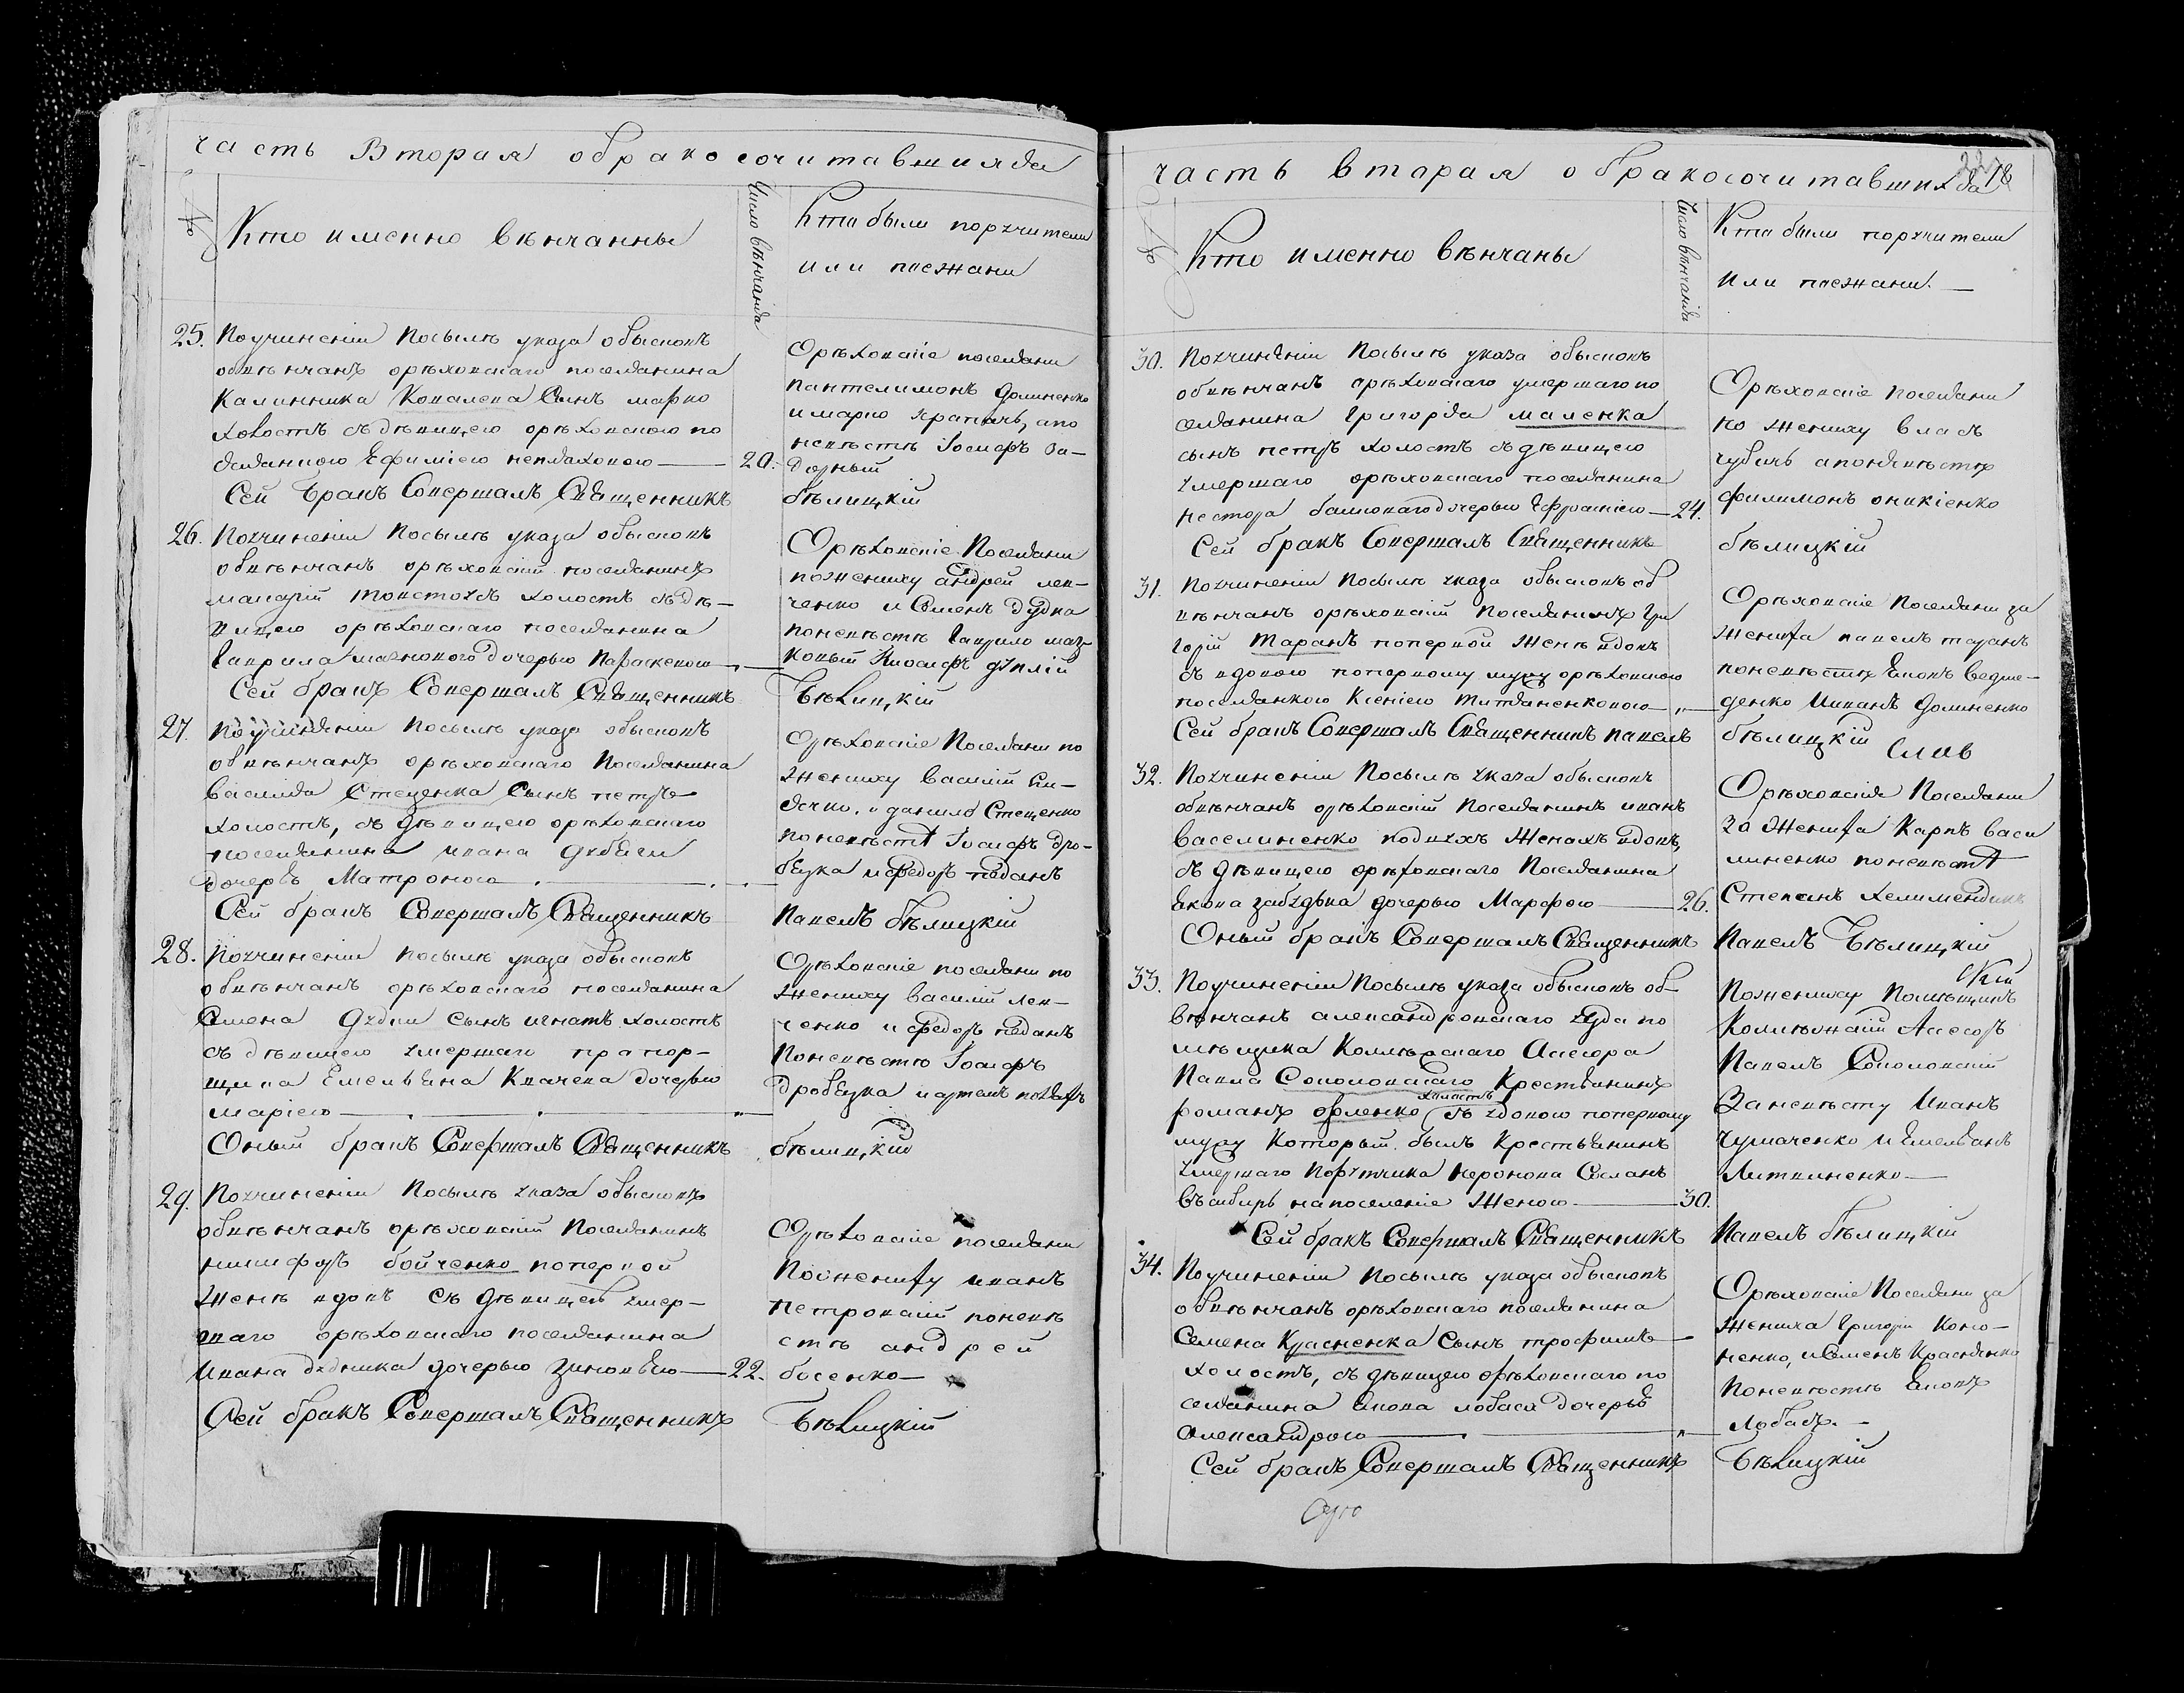 часть Вторая обракосочитавшихся
№
Кто именно вѣнчанны
Число вѣнчанія
Кто были поручители
или поезжани
25. Поучиненіи посылѣ указа обысковъ
обвѣнчанъ орѣховскаго поселянина
Калинника Ковалева Сынъ марко
холостъ съ дѣвицею орѣховскою по
селянкою Ефиміею 20.
Сей Бракъ Совершалъ Священникъ
Орѣховсіе поселяни
пантелимонъ Долиненко
и марко апо
невѣстѣ Іосифъ За-
дорный
бѣлицкій
26. Поучиненіи посылѣ указа обысковъ
обвѣнчанъ орѣховскій поселянинъ
товстоусъ холостъ съ дѣ-
вицею орѣховскаго поселянина
Гаврила дочерью Параскевою „
Сей бракъ Совершалъ Священникъ
Орѣховсіе Поселяни
пожениху андрей лев-
ченко и Семенъ дудка
поневѣстѣ Гаврило маз-
ковый
Бѣлицкій
27. Поучиненіи посылѣ указа обысковъ
обвѣнчанъ орѣховскаго Поселянина
василія Стеценка Сынъ петръ
холостъ, съ дѣвицею орѣховскаго
поселянина ивана
дочеръ Матроною „
Сей бракъ Совершалъ Священникъ
Орѣховсіе Поселяни по
жениху василій Си-
дячко. и данило Стеценко
поневѣстѣ Іосифъ дро-
бязка и федоръ
Павелъ бѣлицкій
28. Поучиненіи посылѣ указа обысковъ
обвѣнчанъ орѣховскаго поселянина
Семена Дудки сынъ игнатъ холостъ
съ дѣвицею умершаго прапор-
щика Емельяна Квачева дочерью
маріею „
Оный бракъ Совершалъ Священникъ
Орѣховсіе поселяни по
жениху василій лев-
ченко и федоръ
Поневѣстѣ Іосифъ
дробязка и артемъ
бѣлицкій
29. Поучиненіи посылѣ указа обысковъ
обвѣнчанъ орѣховскій Поселянинъ
никифоръ бойченко поперной
женѣ вдовъ съ дѣвицею умер-
шаго орѣховскаго поселянина
Ивана дудника дочерью Зиновѣю 22.
Сей бракъ Совершалъ Священникъ
Орѣховсіе поселяни
Пожениху иванъ
петровскій поневѣ
стѣ андрей
босенко
Бѣлицкій
часть вторая обракосочитавшихся 18
№
Кто именно вѣнчаны
Число вѣнчанія
Кто были поручители
или поезжани.
30. Поучиненіи посылѣ указа обысковъ
обвѣнчанъ орѣховскаго умершаго по
селянина Григорія маленка
сынъ петръ холостъ съ дѣвицею
умершаго орѣховскаго поселянина
нестора дочерью Ефросиніею 24.
Сей бракъ Совершалъ Священникъ
Орѣховсіе поселяни
по жениху власъ
чубичъ апоневѣстѣ
филимонъ оникіенко
бѣлицкій
31. Поучиненіи посылѣ указа обысковъ об
вѣнчанъ орѣховскій поселянинъ Гри
горій Таранъ поперной женѣ вдовъ
съ вдовою поперному мужу орѣховскою
поселянкою Ксеніею „
Сей бракъ Совершалъ Священникъ павелъ
Орѣховсіе поселяни за
жениха павелъ таранъ
поневѣстѣ Яковъ Ведме-
денко Иванъ Долиненко
бѣлицкій
32. Поучиненіи посылѣ указа обысковъ
обвѣнчанъ орѣховскій поселянинъ иванъ
василиненко подвухъ женахъ вдовъ,
съ дѣвицею орѣховскаго Поселянина
Якова дочерью Марфою 26.
Оный бракъ Совершалъ Священникъ
Орѣховсія Поселяни
за жениха Карпъ васи
линенко поневѣстѣ
Степанъ
Павелъ Бѣлицкій
33. Поучиненіи посылѣ указа обысковъ об-
вѣнчанъ александровскаго уезда по
мѣщика Колѣжскаго Асесора
Павла Соколовскаго Крестьянинъ
романъ орленко холостъ съ вдовою поперному
мужу Который былъ Крестьянинъ
умершаго порутчика неронова Сосланъ
въ сибирь напоселеніе Женою 30.
Сей бракъ Совершалъ Священникъ
Пожениху Помѣщикъ
Асесоръ
Павелъ Соколовскій
Заневѣсту Иванъ
Чумаченко и Емельянъ
Литвиненко
Павелъ бѣлицкій
34. Поучиненіи посылѣ указа обысковъ
обвѣнчанъ орѣховскаго поселянина
Семена Красненка Сынъ трофимъ
холостъ, съ дѣвицею орѣховскаго по
селянина Якова лобаса дочеръ
александрою „
Сей бракъ Совершалъ Священникъ
Орѣховсіе Поселяни за
жениха Григорій Коно-
ненко, и Семенъ Красненко
поневѣстѣ Яковъ
лобасъ.
Бѣлицкій